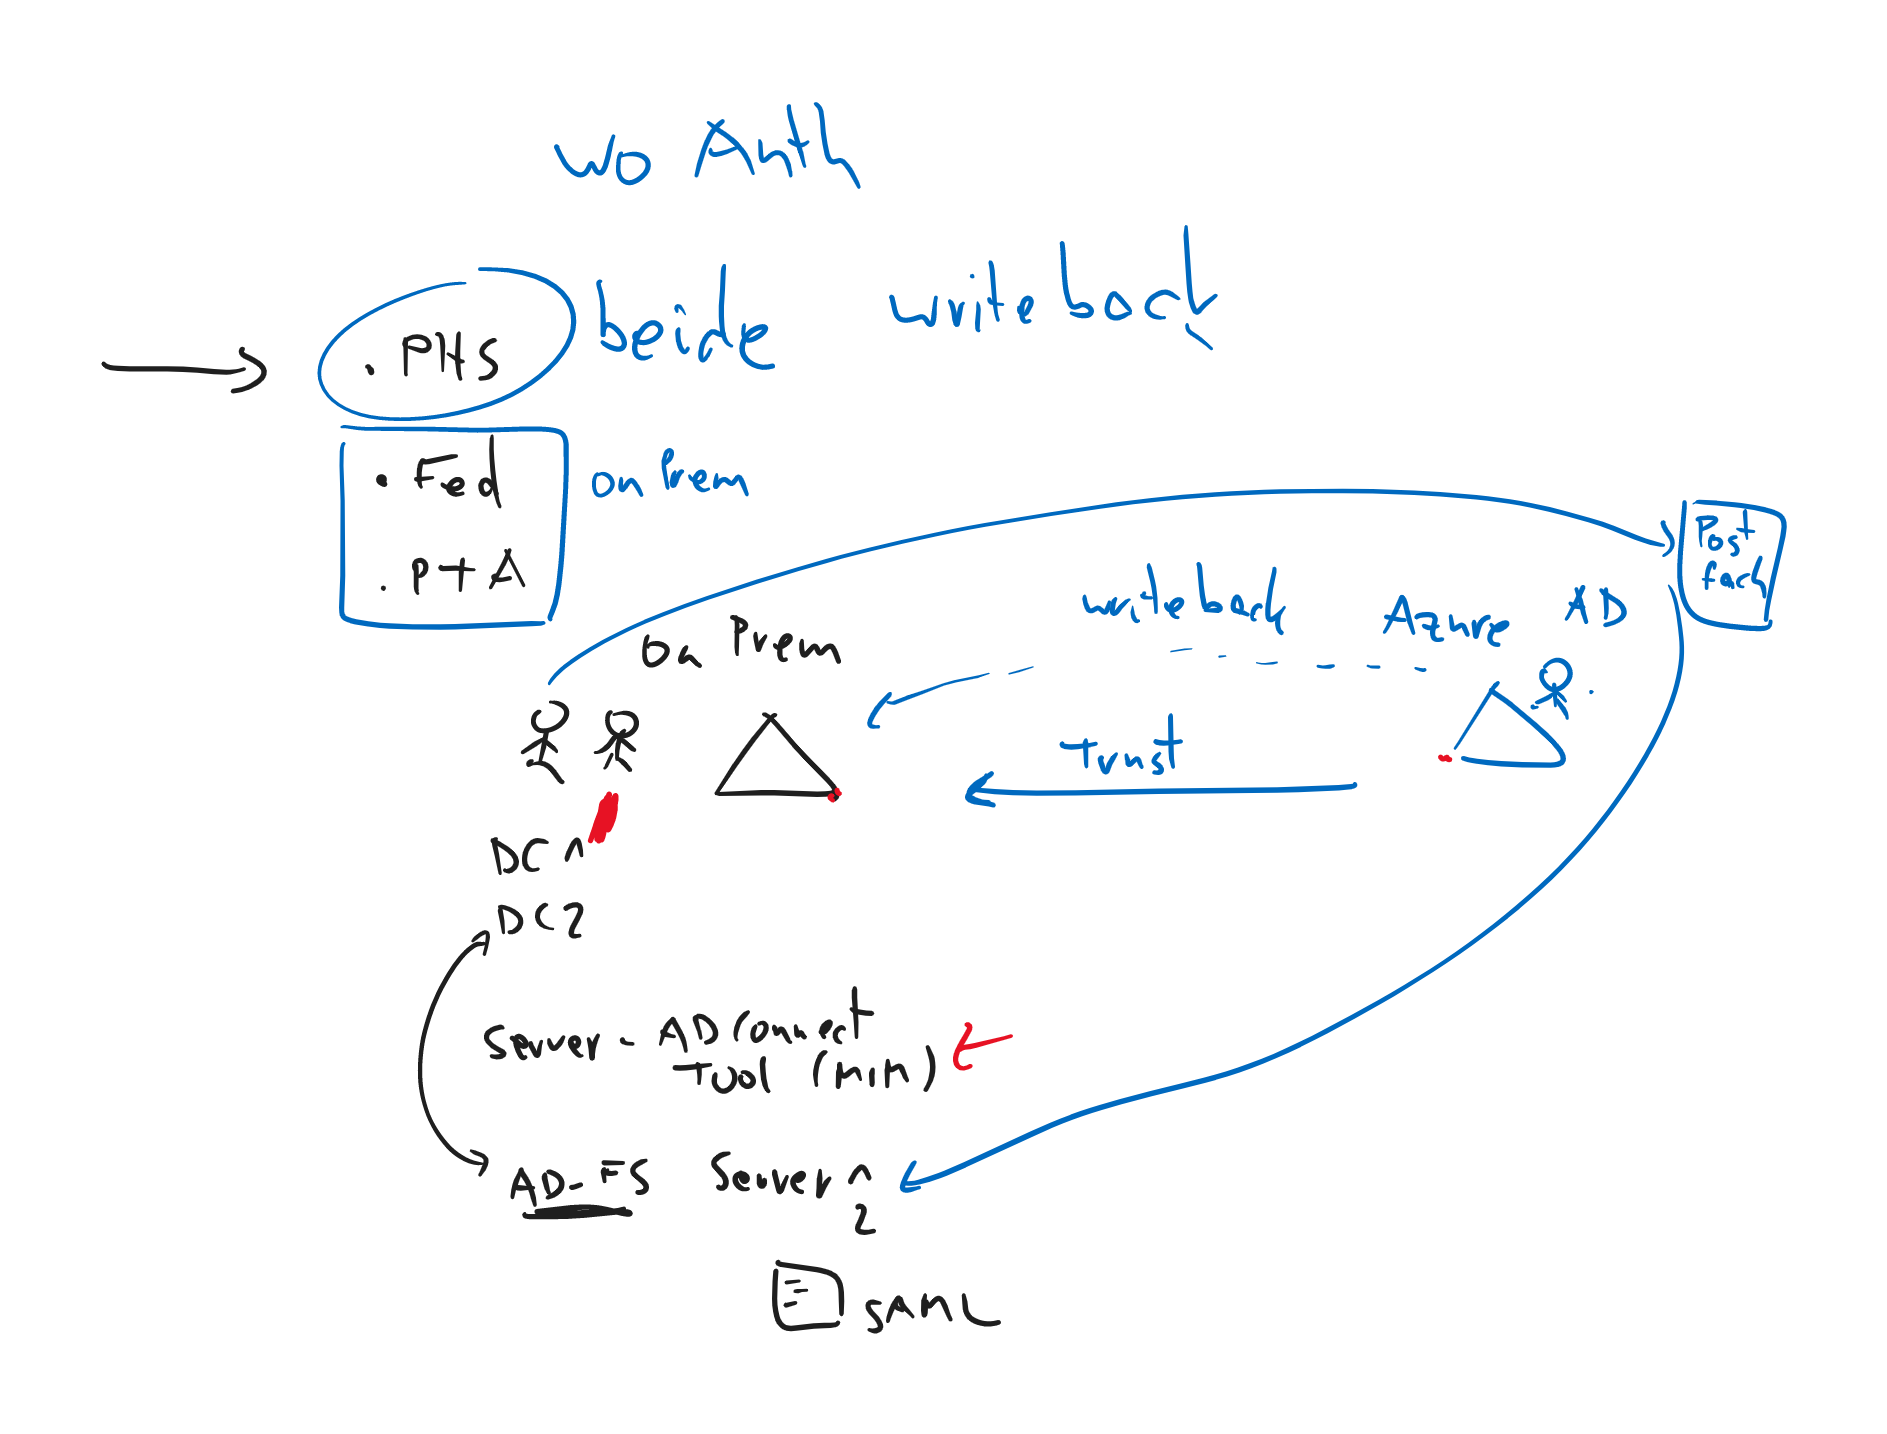 wo Auth
beide writeback
. PHS
. Fed
on Prem
. PtA
Post
fach
writeback Azure AD
On Prem
Trust
DC 1
DC 2
Server - AD Connect
Tool (MIM)
AD-FS Server 1
2
SAML